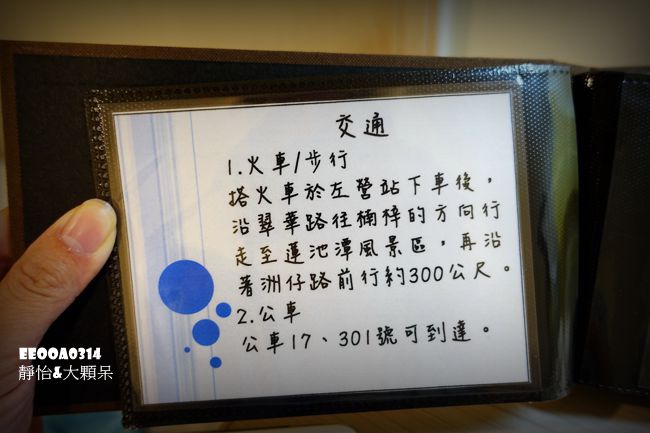 交通
1.火車/步行
搭火車於左營站下車後，
沿翠華路往楠梓的方向行
走至蓮池潭風景區，再沿
著洲仔路前行約300公尺。
2.公車
公車17、301號可到達。
EEOOA0314
靜怡&大顆呆